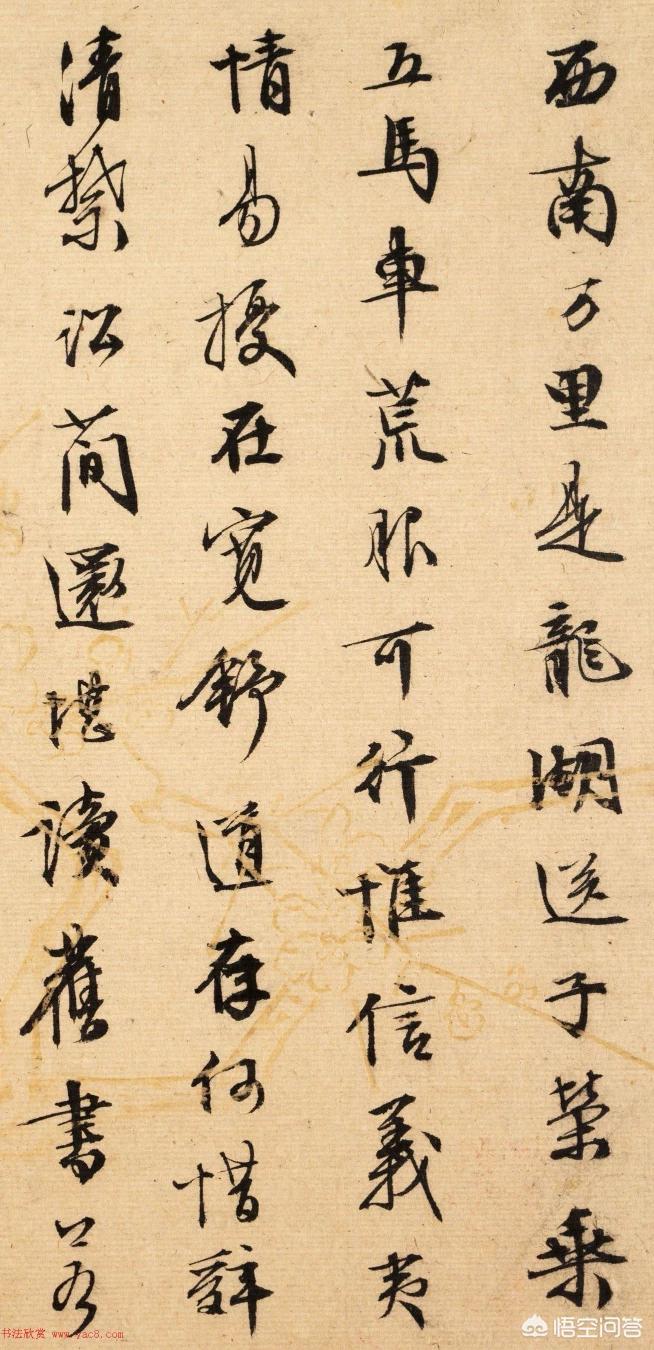 西南万里是龍湖送子榮乗
五馬車荒服可行惟信義夷
情易擾在寬舒道存何惜辞
清禁訟簡還堪讀舊書公若
书法欣赏 www.yac8.com
悟空问答